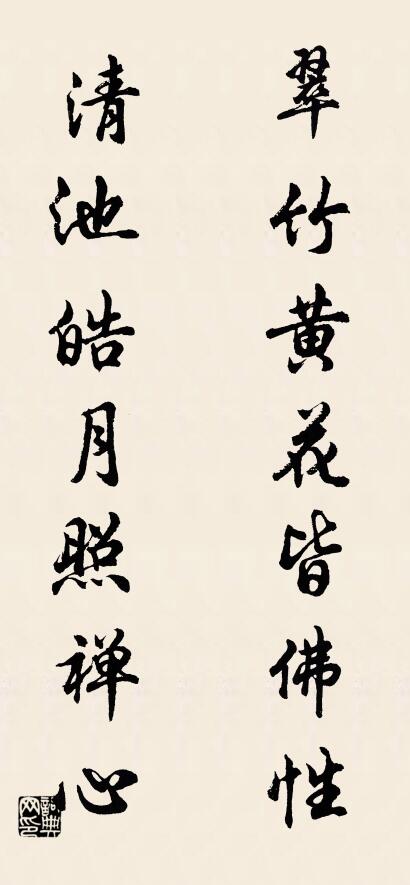 翠竹黄花皆佛性
清池皓月照禅心